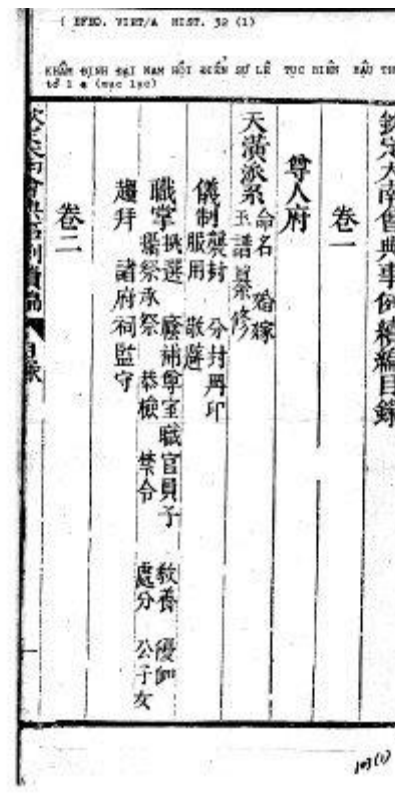 ( EFEO. VIET/A HIST. 32 (1)
KHÂM ĐỊNH ĐẠI NAM HỘI ĐIỂN SỰ LỆ TỤC BIÊN HẬU TH
tờ 1 a (mục lục)
欽定大南會典事例續編目錄
卷一
尊人府
天潢派系 命名 婚嫁
玉譜纂修
儀制 襲封 分封冊印
服用 敬避
職掌 挑選 廕補尊室職官員子 教養 優卹
薦祭承祭 恭檢 禁令 處分 公子女
趨拜 諸府祠監守
卷二
目錄
103(1)